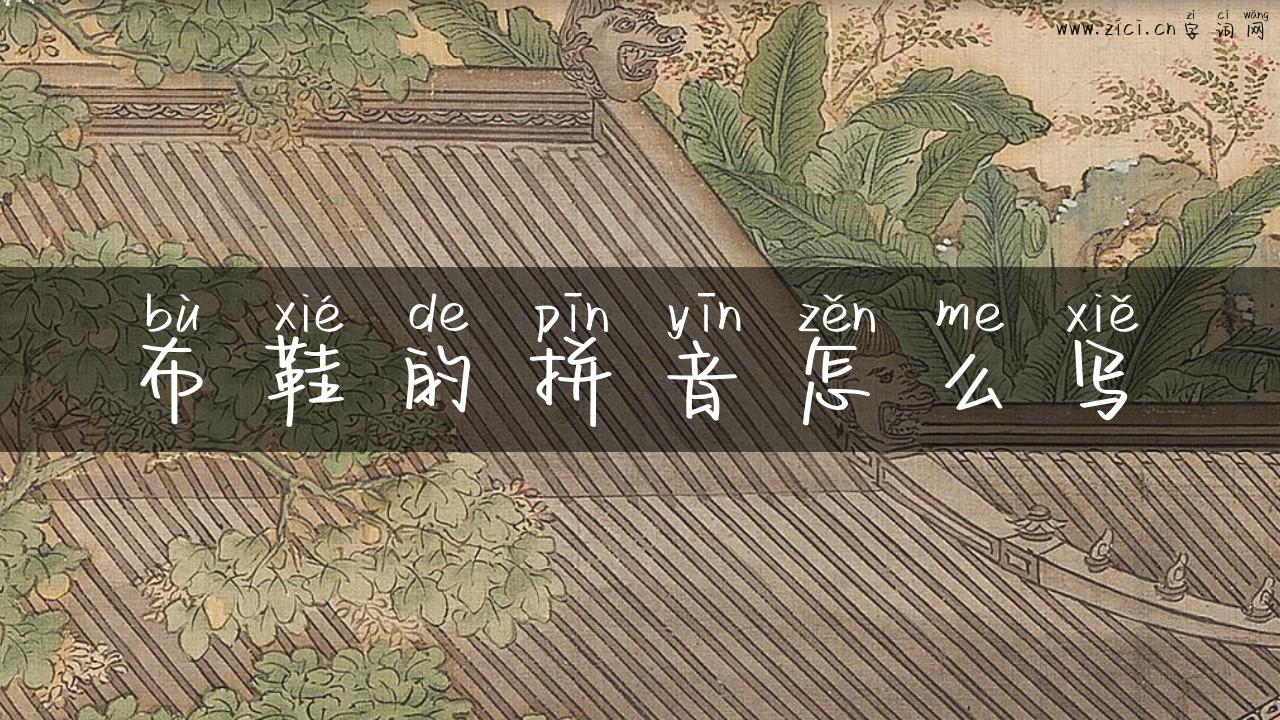 zì cí wǎng
www.zici.cn 字词网
bù xié de pīn yīn zěn me xiě
布鞋的拼音怎么写